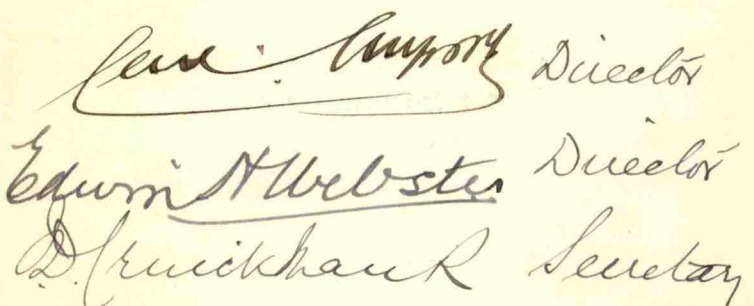 Director
Edwin H Webster Director
D. Cruickshank Secretary